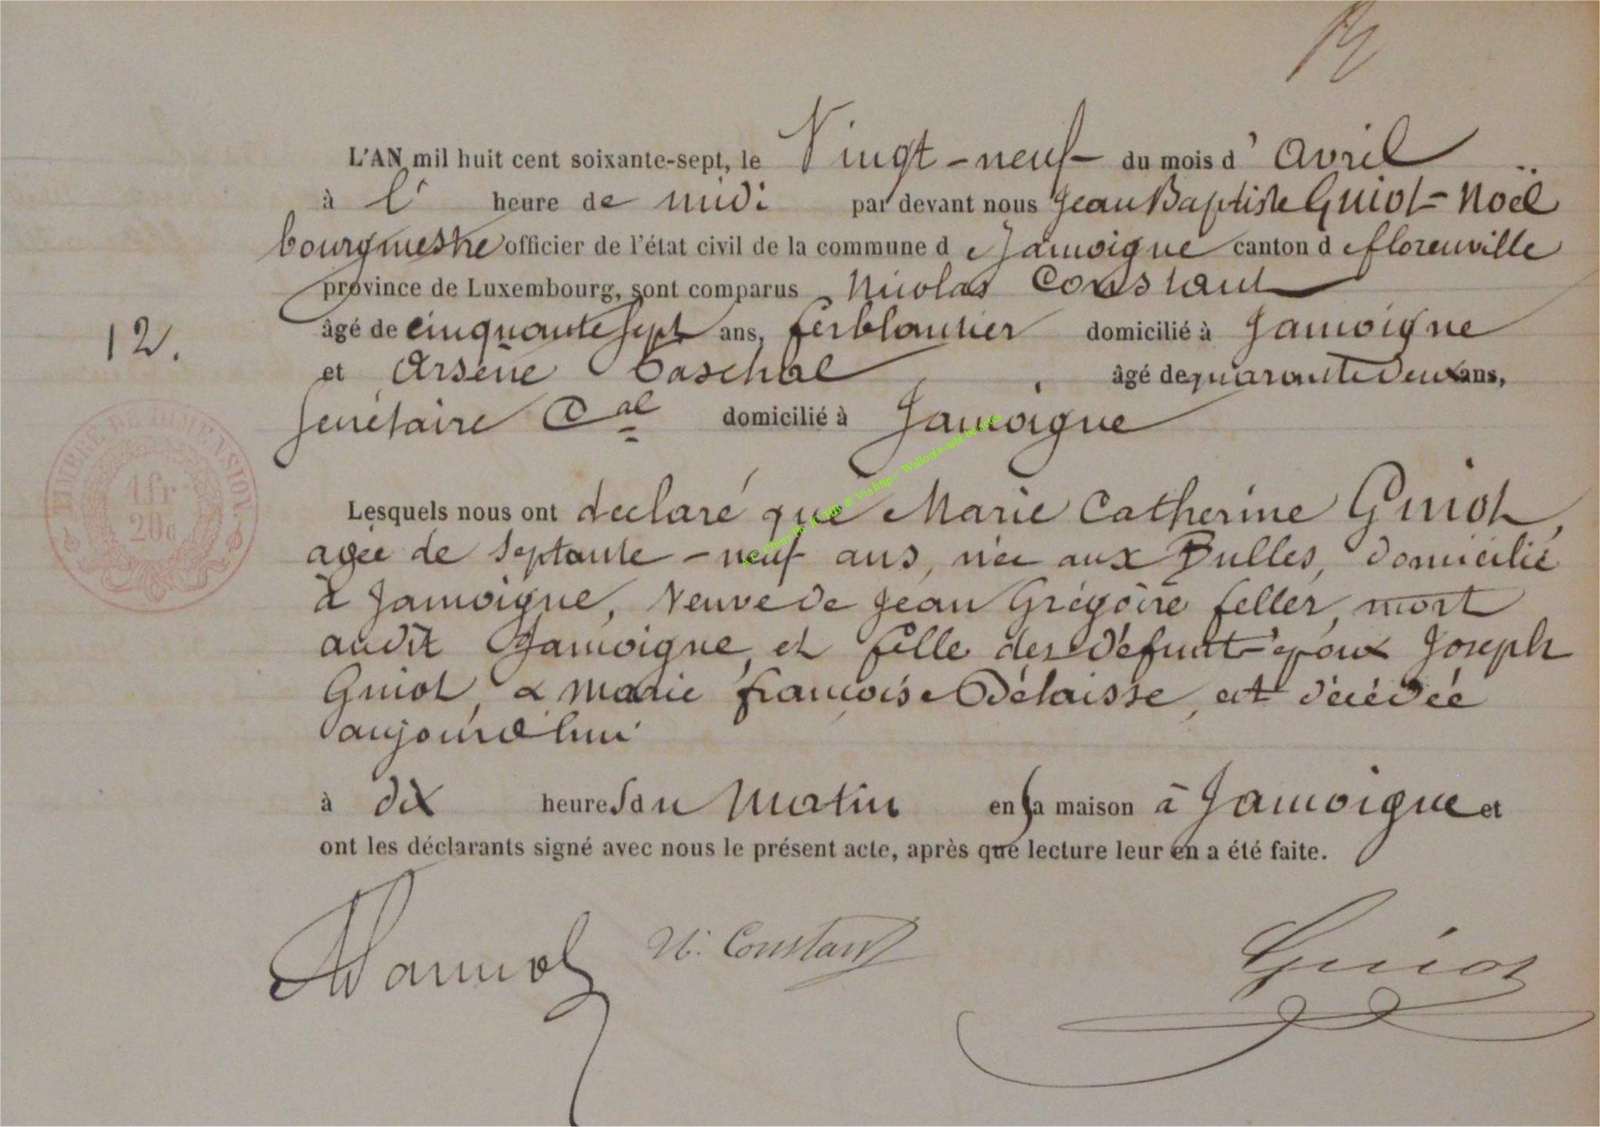 L'AN mil huit cent soixante-sept, le Vingt-neuf du mois d'avril
à l' heure de midi par devant nous Jean Baptiste Guiot-Noël
bourgmestre officier de l'état civil de la commune de Jamoigne canton de florenville
province de Luxembourg, sont comparus Nicolas Constant
âgé de cinquante sept ans, ferblantier domicilié à Jamoigne
12.
et Arsène Paschal âgé de quarante deux ans,
Secrétaire Cal domicilié à Jamoigne
TIMBRE DE DIMENSION
1 fr
20c
Lesquels nous ont déclaré que Marie Catherine Guiot,
agée de septante-neuf ans, née aux Bulles, domicilié
à Jamoigne, Veuve de Jean Grégoire feller, mort
audit Jamoigne, et fille des défunt époux Joseph
Guiot, & Marie françoise Délaisse, est décédée
aujourd'hui
à dix heures du Matin en sa maison à Jamoigne et
ont les déclarants signé avec nous le présent acte, après que lecture leur en a été faite.
N. Constant
Guiot